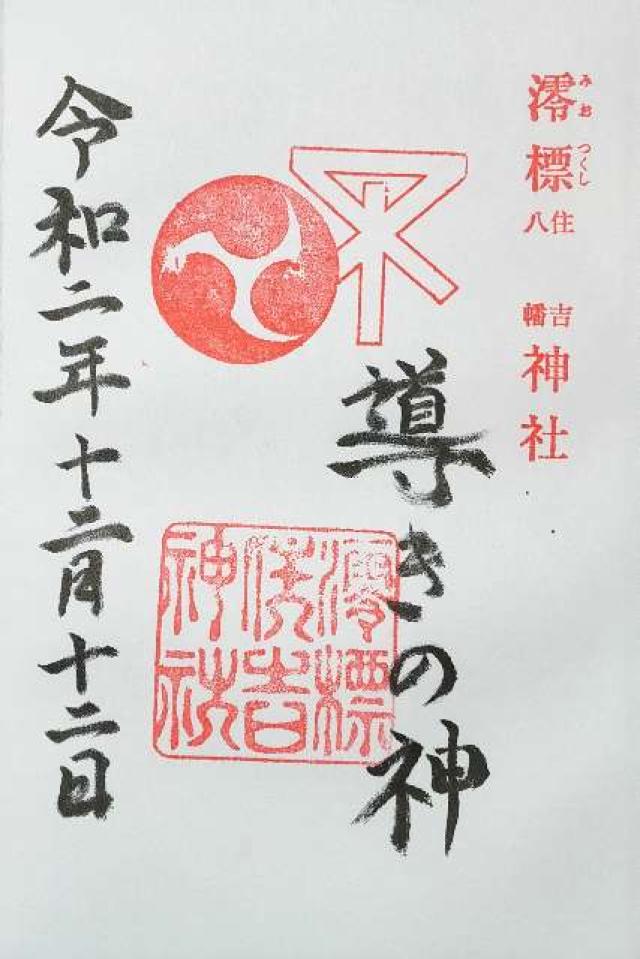 澪標
みおつくし
住吉
八幡
神社
導きの神
澪標
住吉
神社
令和二年十二月十二日